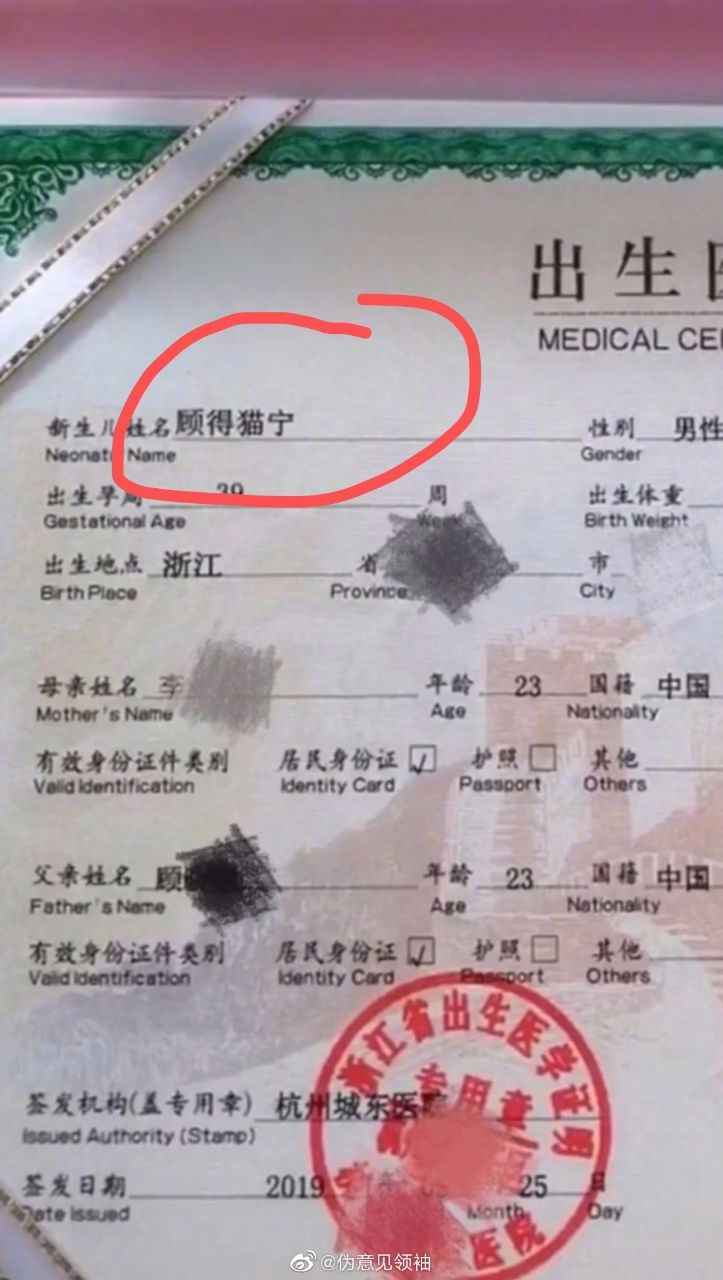 出生医
MEDICAL CE
新生儿姓名 顾得猫宁 性别 男性
Neonate Name Gender
出生孕周 39 周 出生体重
Gestational Age Week Birth Weight
出生地点 浙江 省 市
Birth Place Province City
母亲姓名 李 年龄 23 国籍 中国
Mother's Name Age Nationality
有效身份证件类别 居民身份证 护照 其他
Valid Identification Identity Card Passport Others
父亲姓名 顾 年龄 23 国籍 中国
Father's Name Age Nationality
有效身份证件类别 居民身份证 护照 其他
Valid Identification Identity Card Passport Others
浙江省出生医学证明
专用章
签发机构(盖专用章) 杭州城东医院
Issued Authority (Stamp)
签发日期 2019 年 25 日
Date Issued Month Day
医院
@伪意见领袖